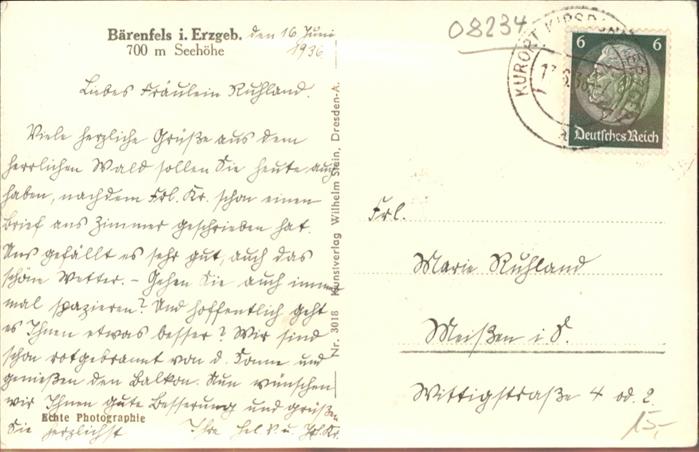 Bärenfels i. Erzgeb. den 16. Juni
700 m Seehöhe 1936
Liebes Fräulein Ruhland.
Viele herzliche Grüße aus dem
herrlichen Wald sollen Sie heute auch
haben, nachdem Frl. Kr. schon einen
Brief ans Zimmer geschrieben hat.
Uns gefällt es sehr gut, auch das
schöne Wetter. – Gehen Sie auch immer
mal spazieren? Und hoffentlich geht
es Ihnen etwas besser? Wir sind
schon rotgebrannt von d. Sonne und
genießen den Balkon. Nun wünschen
wir Ihnen gute Besserung und grüßen
Echte Photographie
Sie herzlichst Ihre Hel. V. u. Frl. Kr.
Nr. 3018 Kunstverlag Wilhelm Stein, Dresden-A.
08234
KURORT KIPSDORF
6 6
Deutsches Reich
Frl.
Marie Ruhland
Meißen i. S.
Wittigstraße 4 od. 2.
15,-